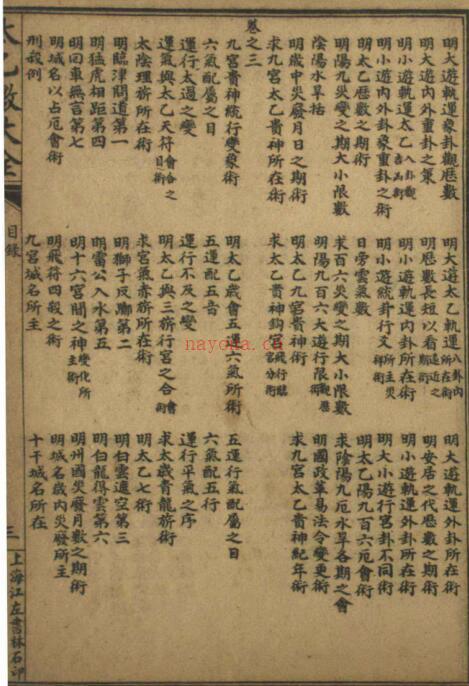 明大遊軌運象卦觀曆數
明大遊太乙軌運所在術八卦內
明大遊軌運外卦所在術
明大遊內外重卦之策
明曆數長短以看遠近之期術
明安居之代歷數之期術
明小遊軌運太乙八卦觀吉凶術
明小遊軌運內卦所在術
明小遊軌運外卦所在術
明小遊內外卦象重卦之術
明小遊統卦行爻所主災祥術
明大小遊行宮卦不同術
明太乙曆數之期術
日旁雲氣數
明太乙陽九百六厄會術
明陽九災變之期大小限數
求百六災變之期大小限數
求陰陽九厄水旱各期之會
陰陽水旱括
明陽九百六大遊行限觀歷術
明國政革易法令變更術
明歲中災發月日之期術
明太乙九宮貴神術
求九宮太乙貴神紀年術
求九宮太乙貴神所在術
求太乙貴神鈎宮飛行棊宮分術
卷之三
九宮貴神統行變象術
明太乙歲會五運六氣所術
五運行氣配屬之日
六氣配屬之日
五運配五音
六氣配五行
運行太過之變
運行不及之變
運行平氣之序
運氣與太乙天符會合之日術
明太乙與三旂行宮之合會術
求太歲青龍旂術
太陰理旂所在術
求宮氣赤旂所在術
明太乙七術
明臨津問道第一
明獅子反躑第二
明白雲遶空第三
明猛虎相距第四
明雷公入水第五
明白龍得雲第六
明回車無言第七
明十六宮間之神變化所主術
明州國災發月數之期術
明城名以占厄會術
明飛符四殺之術
明城名歲內災發所主
刑殺例
九宮城名所主
十干城名所在
太乙數大全
目錄
三
上海江左書林石印
nayona.cn